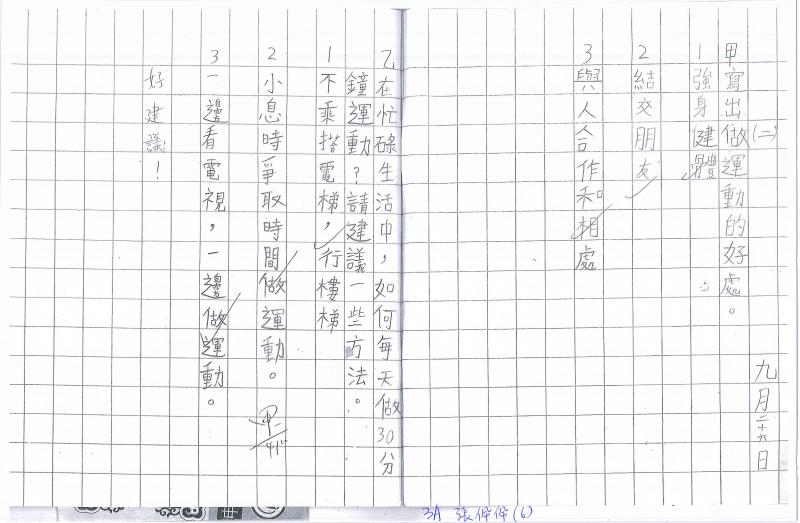 九月二十六日
(二)
甲寫出做運動的好處。
1強身健體
2結交朋友
3與人合作和相處
乙在忙碌生活中，如何每天做30分
鐘運動？請建議一些方法。
1不乘搭電梯，行樓梯
2小息時爭取時間做運動。
3一邊看電視，一邊做運動。
好建議！
甲-
3A 張伴伴(6)